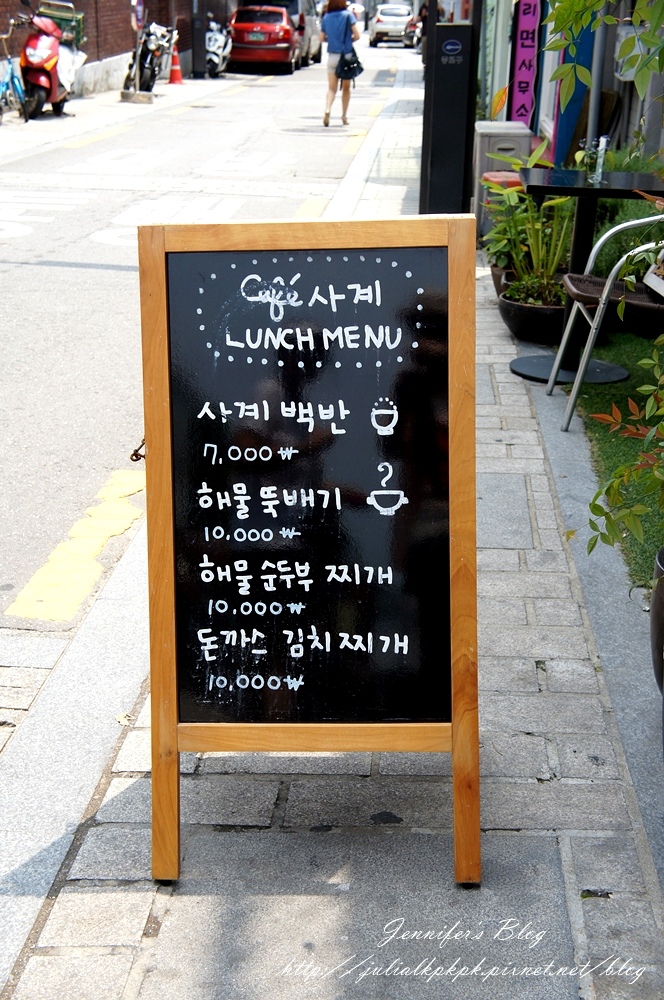 리면사무소
Café 사계
LUNCH MENU
사계 백반
7,000 ₩
해물 뚝배기
10,000 ₩
해물 순두부 찌개
10,000 ₩
돈까스 김치찌개
10,000 ₩
Jennifer's Blog
http://julialkpkpk.pixnet.net/blog